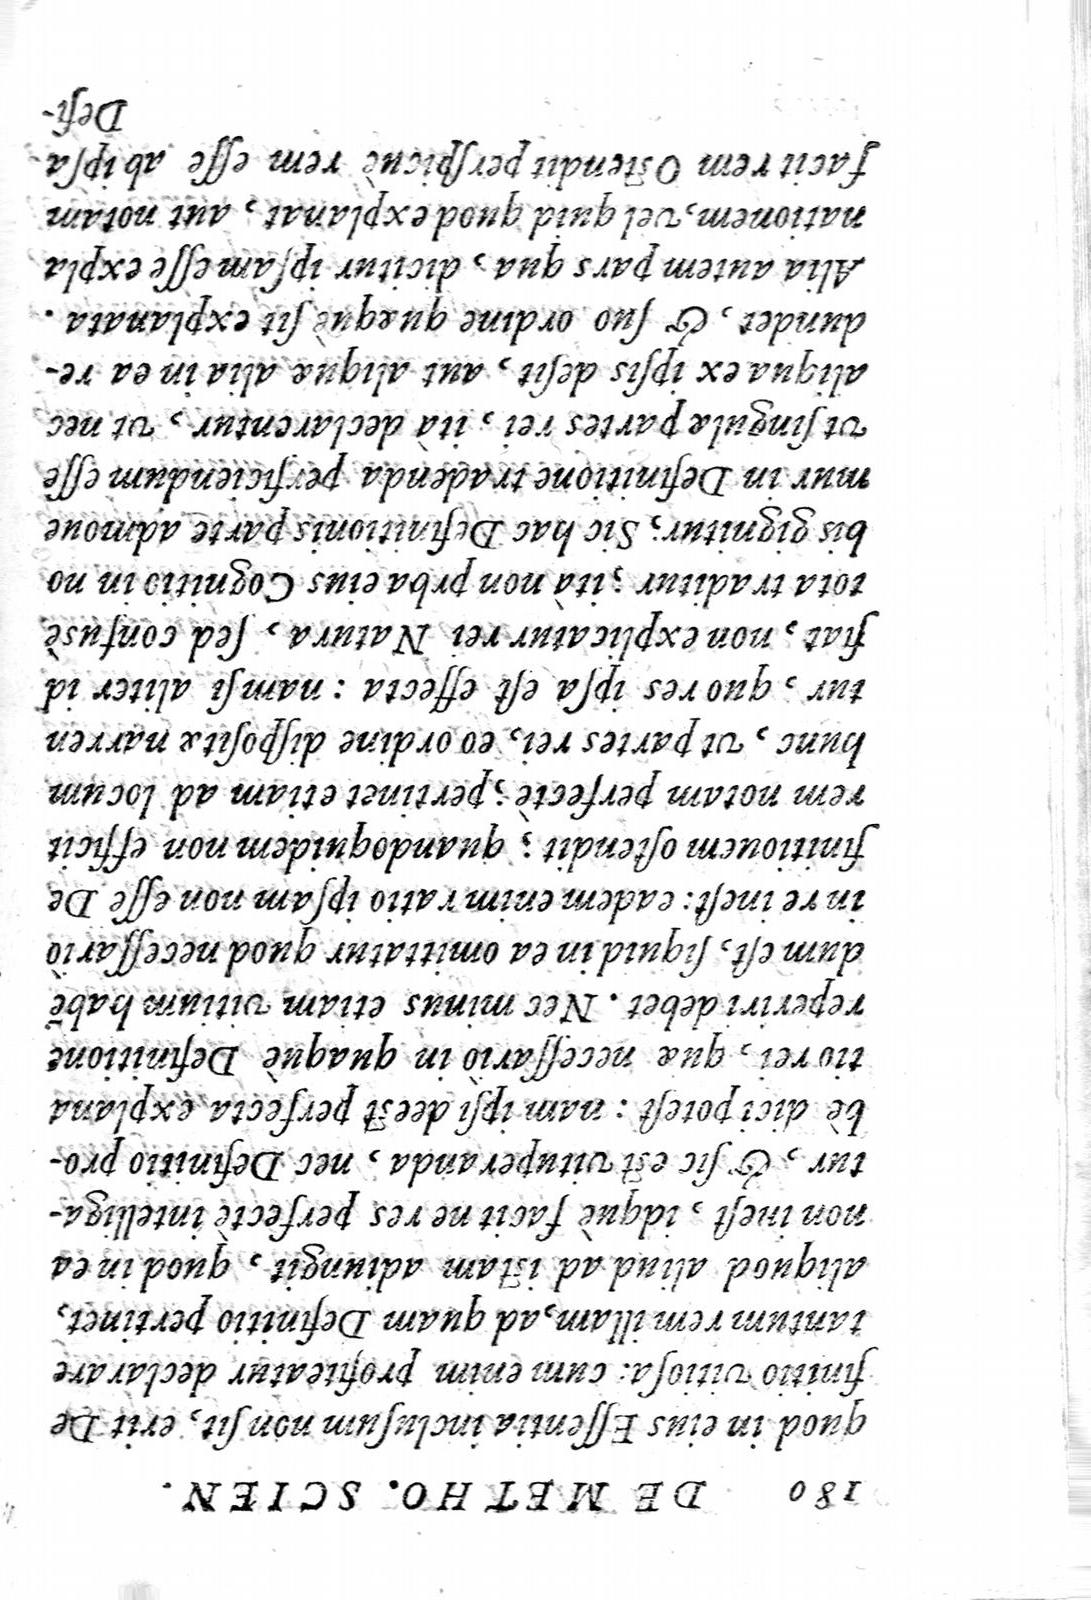 180 DE METHO. SCIEN.
quod in eius Eſſentia incluſum non ſit, erit De
finitio vitioſa: cum enim profiteatur declarare
tantum rem illam, ad quam Definitio pertinet,
aliquod aliud ad iſtam adiungit, quod in ea
non ineſt, idquè facit ne res perfectè intelliga-
tur, & ſic eſt vituperanda, nec Definitio pro-
bè dici poteſt: nam ipſi deeſt perfecta explana
tio rei, quæ neceſſariò in quaquè Definitione
reperiri debet. Nec minus etiam vitium habē
dum eſt, ſiquid in ea omittatur quod neceſſariò
in re ineſt: eadem enim ratio ipſam non eſſe De
finitiouem oſtendit; quandoquidem non efficit
rem notam perfectè; pertinet etiam ad locum
hunc, vt partes rei, eo ordine diſpoſitæ narren
tur, quo res ipſa eſt effecta: nam ſi aliter id
fiat, non explicatur rei Natura, ſed confuſè
tota traditur; ità non prba eius Cognitio in no
bis gignitur; Sic hac Definitionis parte admone
mur in Definitione tradenda perficiendum eſſe
vt ſingulæ partes rei, ità declarentur, vt nec
aliqua ex ipſis deſit, aut aliquæ alia in ea re-
dundet, & ſuo ordine quæquè ſit explanata.
Alia autem pars qua, dicitur ipſam eſſe expla
nationem, vel quid quod explanat, aut notam
facit rem Oſtendit perſpicuè rem eſſe ab ipſa
Defi-